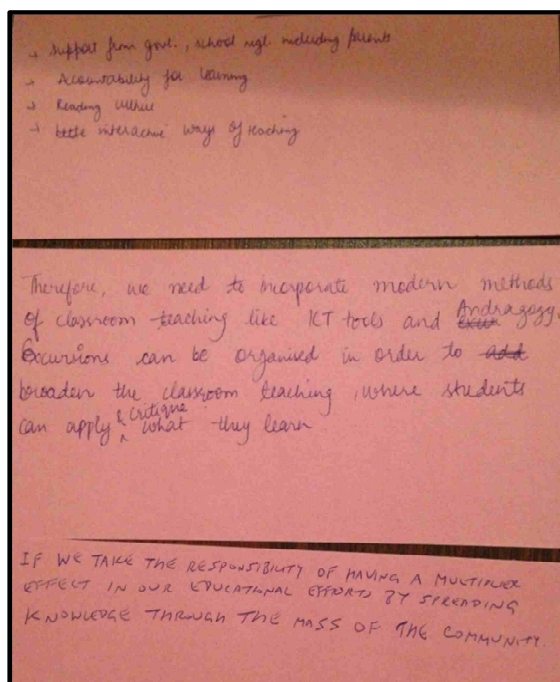 → Support from govt., school mgt. including parents
→ Accountability for learning
→ Reading culture
→ better interactive ways of teaching
Therefore, we need to incorporate modern methods
of classroom teaching like ICT tools and Andragogy.
Excursions can be organised in order to add
broaden the classroom teaching, where students
can apply & critique what they learn
IF WE TAKE THE RESPONSIBILITY OF HAVING A MULTIPLIER
EFFECT IN OUR EDUCATIONAL EFFORTS BY SPREADING
KNOWLEDGE THROUGH THE MASS OF THE COMMUNITY.